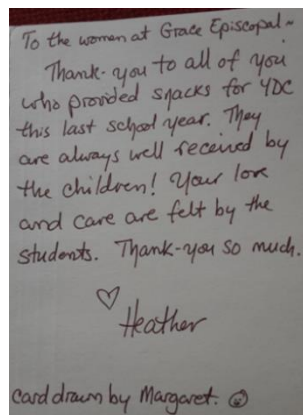 To the women at Grace Episcopal ~
Thank-you to all of you
who provided snacks for YDC
this last school year. They
are always well received by
the children! Your love
and care are felt by the
students. Thank-you so much.
♡
Heather
card drawn by Margaret. ☺